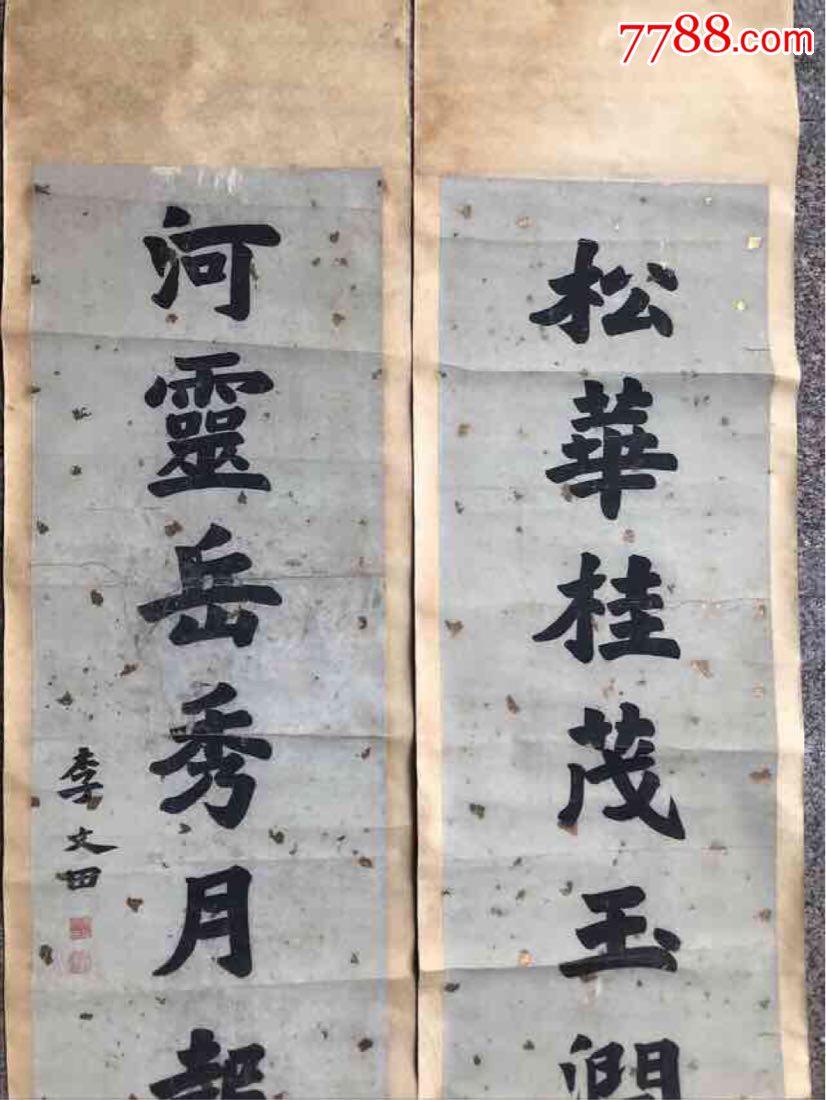 7788.com
松華桂茂玉潤
河靈岳秀月起
李文田